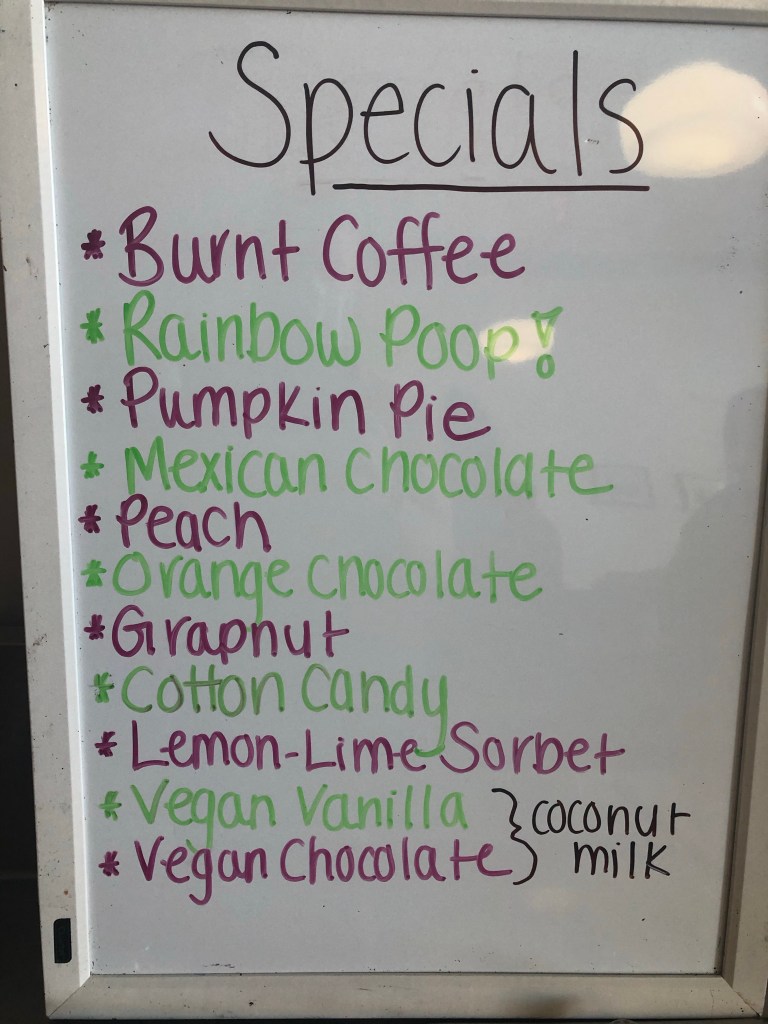 Specials
* Burnt Coffee
* Rainbow Poop!
* Pumpkin Pie
* Mexican Chocolate
* Peach
* Orange Chocolate
* Grapnut
* Cotton Candy
* Lemon-Lime Sorbet
* Vegan Vanilla
* Vegan Chocolate
} coconut
milk